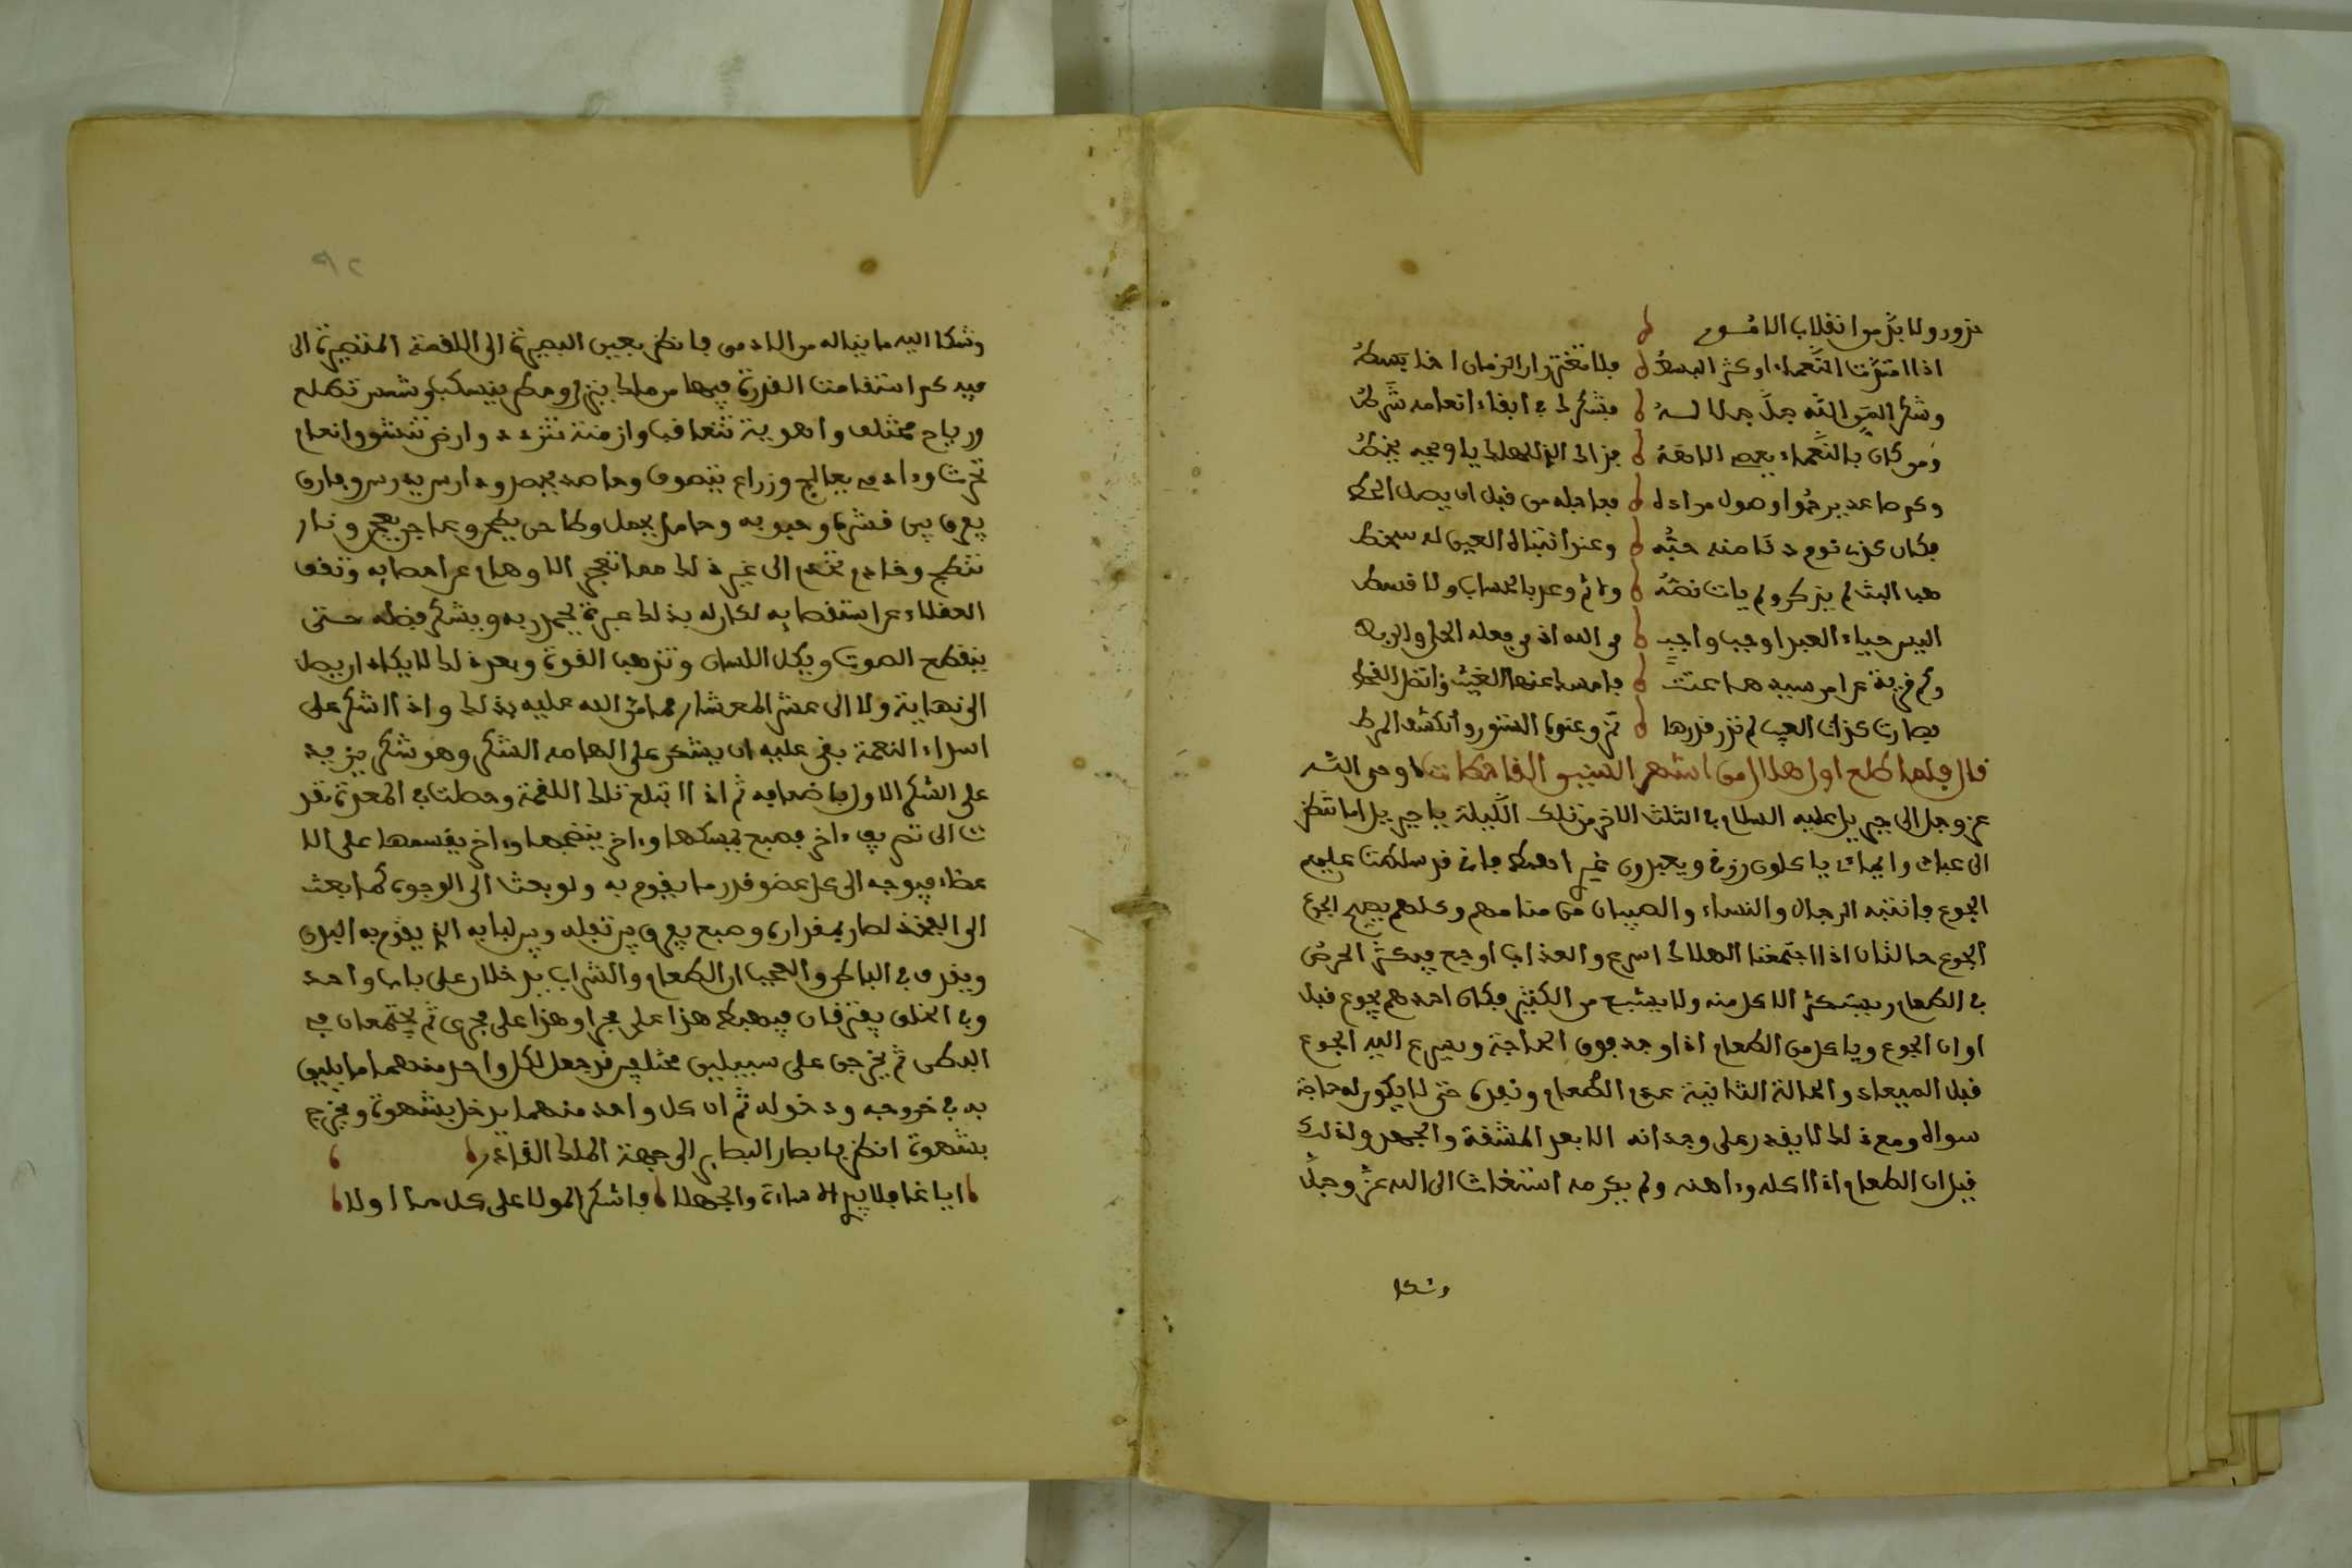 تزور ولا بد من انقلاب الامور
اذا امتدت النعماء او كثر البسط فلا تغترر ان الزمان اذا بسط
وشكر المن الله جل جلاله فشكرك في ابقاء انعامه شرط
ومن كان بالنعماء يعصى الاهه
وكم صاعد يرجوا وصول مراده فعاجله من قبل ان يصل الحط
فكان كذى نوم دنا منه حبه وعند انتباه العين له سخط
هب البث لم يذكر ولم يات نصه ولم وعد بالحساب ولا قسط
اليس حياء العبد اوجب واجب من الله اذ من فعله الحل والربط
وكم قرية عن امر سيدها عتت فامسك عنها الغيث واتصل القحط
فصارت كذات العيب لم تدر قدرها
قال فلما طلع اول هلال من اشهر السنين القاحطات اوحى الله
عز وجل الى جبريل عليه السلام في الثلث الاخر من تلك الليلة يا جبريل اما تنظر
الى عبادى وامائى ياكلون رزقى ويعبدون غيرى اهبط فانى قد سلطت عليهم
الجوع فانتبه الرجال والنساء والصبيان من منامهم وكلهم يصيح الجوع
الجوع حالتان اذا اجتمعتا الهلاك اسرع والعذاب اوجع فيكثر الحرص
في الطعام ويستكثر الاكل منه ولا يشبع من الكثير فكان احدهم يجوع قبل
اوان الجوع وياكل من الطعام اذا وجد فوق الحاجة ويسرع اليه الجوع
قبل الميعاد والحالة الثانية عدم الطعام وفقده حتى لا يكون له حاجة
سواه ومع ذلك لا يقدر على وجدانه الا بعد المشقة والجهد ولذلك
قيل ان الطعام اذا اكله واهنه ولم يكرمه استغاث الى الله عز وجل
وشكا
وشكا اليه ما يناله من الادمى فانظر بعين البصيرة الى اللقمة المتصيرة الى
فيه كم استقامت القدرة فيها من ملك ينزل ومطر ينسكب وشمس تطلع
ورياح مختلف واهوية تتعاقب وازمنة تتردد وارض تنشق وانعام
تحرث وادمى يعالج وزراع يتصرف وحاصد يحصد ودارس يدرس وفارق
يفرق بين قشره وحبوبه وحامل يحمل وطاحن يطحن وعاجن يعجن ونار
تنضج وخادم تخدم الى غير ذلك مما تعجز الاوهام عن احصايه وتقف
العقلاء عن استقصايه لكان له بذلك عبرة يحمد ربه ويشكر فضله حتى
ينقطع الصوت ويكل اللسان وتذهب القوة وبعد ذلك لا يكاد ان يصل
الى نهاية ولا الى عشر المعشار مما من الله عليه بذلك واذا اشكر على
اسداء النعمة بقى عليه ان يشكر على الهامه الشكر وهو شكر يزيد
على الشكر الاول باضعافه ثم اذا ابتلع تلك اللقمة وحطت في المعدة تقر
الى تصريف اخر فصبع يمسكها واخر ينضجها واخر يقسمها على الا
عضاء فيوجه الى كل عضو قدر ما يقوم به ولو بعث الى الوجوه كما بعث
الى الفخذ لصار بمقداره وصبع يفرق بين تفله وبين لبابه الذى يقوم به البدن
ويفرق في الباطن والعجب ان الطعام والشراب يدخلان على باب واحد
وفي الحلق يفترقان فيهبط هذا على مجرا وهذا على مجرى ثم يجتمعان في
البطن ثم يخرجن على سبيلين مختلفين قد جعل لكل واحد منهما ما يليق
به في خروجه ودخوله ثم ان كل واحد منهما يدخل بشهوة ويخرج
بشهوة انظر يا بصار البصاير الى جهة الملك القادر
ايا غافلا بين الاساءة والجهلا فاشكر المولا على كل ما اولا